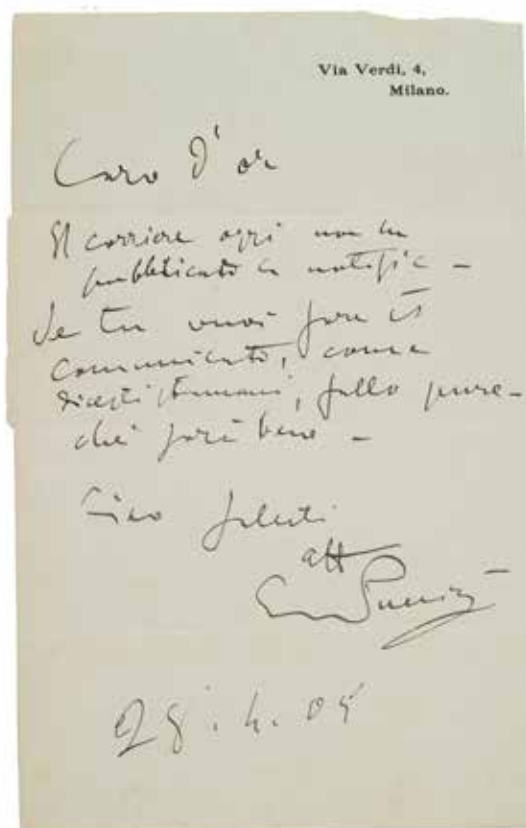 Via Verdi, 4,
Milano.
Caro D'or
Il corriere oggi non ha
pubblicato la notizia –
Se tu vuoi fare il
comunicato, come
dicesti stamani, fallo pure –
che farà bene –
Ciao saluti
aff
GPuccini
28.4.05